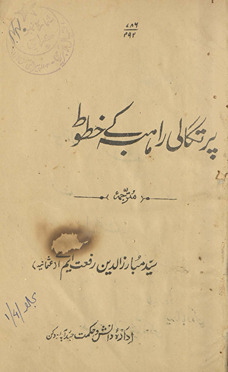 ۷۸۶
۹۲
پرتگالی راہبہ کے خطوط
(مترجمہ)
سید مبارز الدین رفعت ایم اے (عثمانیہ)
ادارۂ دانش و حکمت حیدرآباد دکن